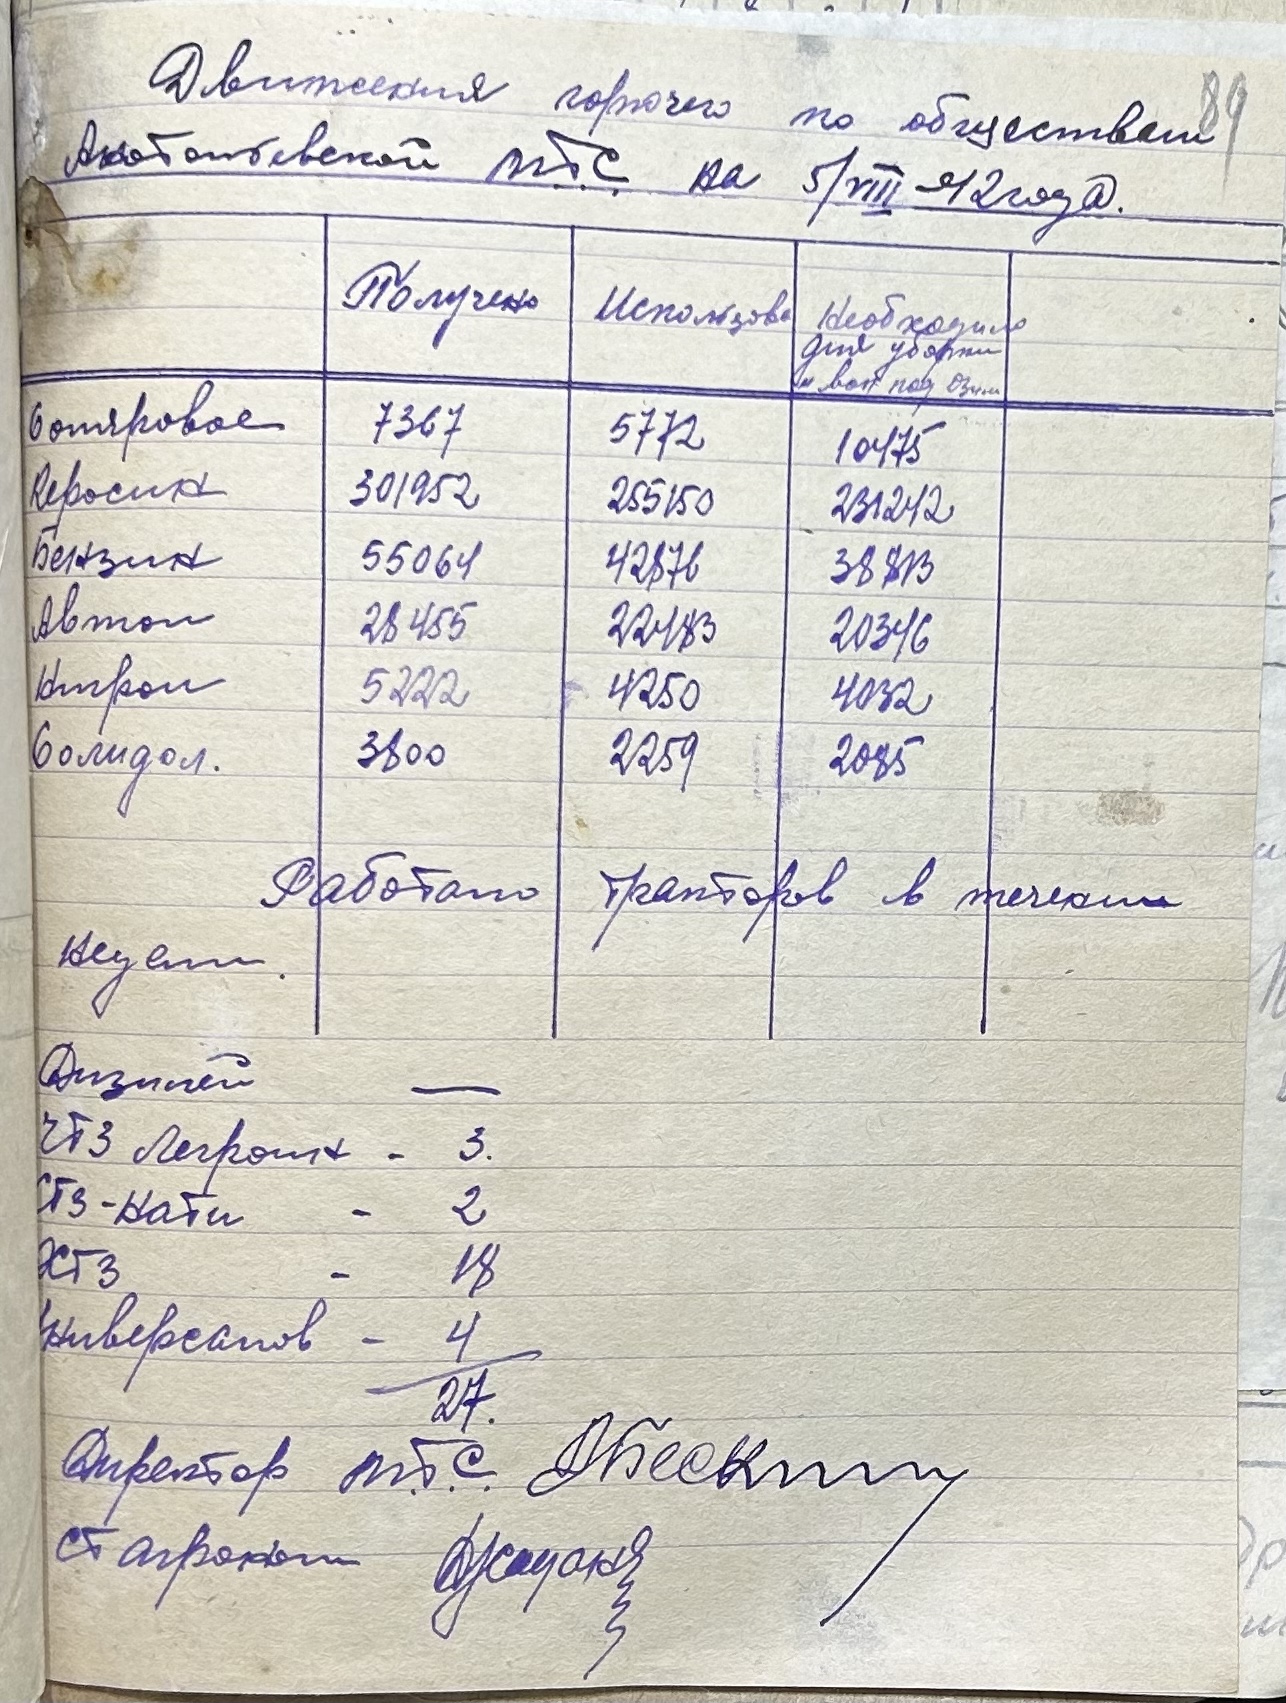 89
Движения горючего по обществам
Анатольевской М.Т.С. на 5/VIII-42 года.
Получено Использова Необходимо
для уборки
и вот под Озим
Соляровое 7367 5772 10475
Керосин 301952 255150 231242
Бензин 55064 42876 38813
Автол 28455 22483 20346
Нигрол 5222 4250 4032
Солидол. 3800 2259 2085
Работало тракторов в течении
недели.
Дизилей —
ЧТЗ Легроин - 3.
СТЗ-Нати - 2
ХТЗ - 18
Универсалов - 4
27.
Директор М.Т.С.
Ст агроном